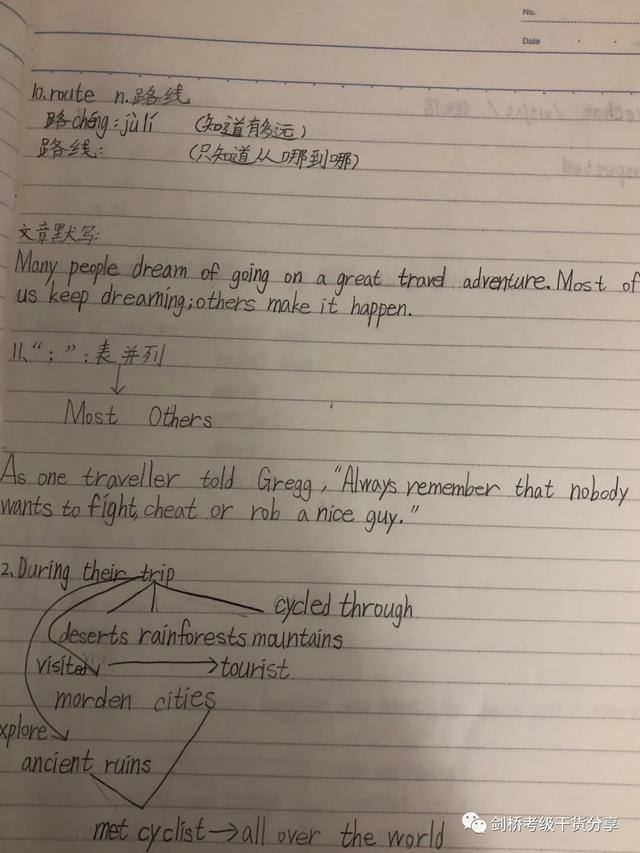 No.
Date
10.route n.路线
路chéng:jùlí (知道有多远)
路线: (只知道从哪到哪)
文章默写:
Many people dream of going on a great travel adventure. Most of
us keep dreaming; others make it happen.
11、“;”:表并列
Most Others
As one traveller told Gregg, "Always remember that nobody
wants to fight, cheat or rob a nice guy."
2. During their trip
cycled through
deserts rainforests mountains
visited → tourist
morden cities
xplore
ancient ruins
met cyclist → all over the world
剑桥考级干货分享